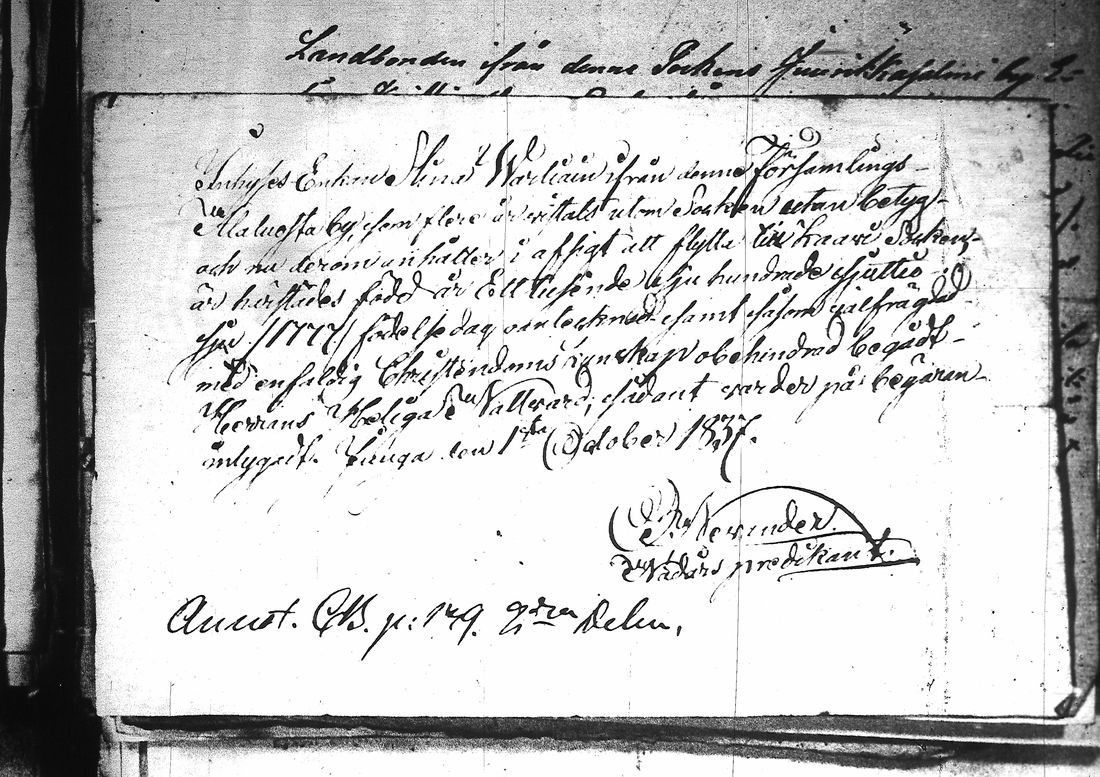 Landbonden ifrån denne Sockens by
Inhyses Enkan Stina Warliain ifrån denne Församlings
Maluesta by, som flere år vistats utom Socken utan betyg
och nu derom anhåller i afsigt att flytta till Kaarä Socken
är härstädes född år Ett tusende sju hundrade sjuttio
sju /1777/ födelsedag oantecknad samt såsom sjelfrägdad
med enfaldig Christendoms kunskap obehindrad begådt
Herrans Heliga Nattvard; sådant varder på begäran
intygadt. Punga den 1sta October 1837.
Nerander.
Wadårs predikant.
Annot. CB. p: 149. 2dra Delen.